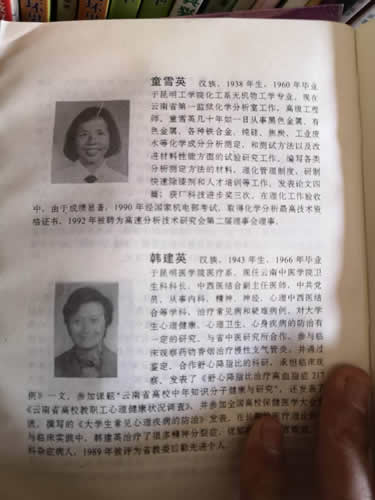 童雪英 汉族，1938年生，1960年毕业
于昆明工学院化工系无机物工学专业，现在
云南省第一监狱化学分析室工作，高级工程
师。童雪英几十年如一日从事黑色金属、有
色金属、各种铁合金、纯硅、焦炭、工业废
水等化学成分分析测定，和测试方法以及改
进材料性能方面的试验研究工作，编写各类
分析测定方法的材料，理化管理制度，研制
快速除漆剂和人才培训等工作，发表论文四
篇；获厂科技进步奖三次，在理化工作验收
中，由于成绩显著，1990年经国家机电部考试，取得化学分析最高技术资
格证书，1992年被聘为高速分析技术研究会第二届理事会理事。
韩建英 汉族，1943年生，1966年毕业
于昆明医学院医疗系，现任云南中医学院卫
生科科长，中西医结合副主任医师，中共党
员，从事内科，精神、神经，心理中西医结
合等学科，治疗常见病和疑难病，对大学
生心理健康、心理卫生、心身疾病的防治有
一定的研究，与省中医研究所合作，参与临
床观察药物香烟治疗慢性支气管炎，并通过
鉴定，合作舒心降脂比的科研，承担临床观
察，发表了《舒心降脂比治疗高血脂症317
例》一文，参加课题“云南省高校中年知识分子健康与研究”，还发表了
《云南省高校教职工心理健康状况调查》，并参加全国高校保健医学大会
，撰写的《大学生常见心理疾病的防治》发表，在
与临床实践中，韩建英治疗了很多精神分裂症，
科杂症病人，1989年被评为省教委后勤先进个人。